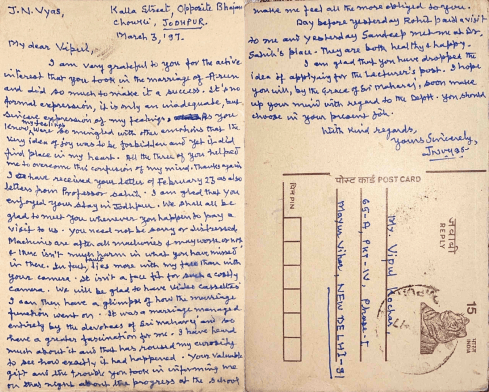 J.N. Vyas,
Kalla Street, Opposite Bhajan
Chowki, JODHPUR.
March 3, '97.
My dear Vipul,
I am very grateful to you for the active
interest that you took in the marriage of
and did so much to make it a success. It's no
formal expression, it is only an inadequate, but
sincere expression of my feelings. As you
know, my feelings were so mingled with other emotions that the
very idea of joy was to be forbidden and yet it did
find place in my heart. All the three of you helped
me to overcome this confusion of my mind. Thanks again
I have received your letter of February 27 as also
letters from Professor Sahib. I am glad that you
enjoyed your stay in Jodhpur. We shall all be
glad to meet you whenever you happen to pay a
visit to us. You need not be sorry or distressed.
Machines are after all machines & may work or not
& there isn't much harm in what you have missed
in there. In fact, lies more with my face than with
your camera. It isn't a face fit for such a costly
camera. We will be glad to have Video Cassettes
I can then have a glimpse of how the marriage
function went on. It was a marriage managed
entirely by the devotees of Sri maharaj and so
have a greater fascination for me. I have heard
much about it and that has roused my curiosity
to see how exactly it had happened. Your valuable
gift and the trouble you took in informing me
on that night about the progress at the school
make me feel all the more obliged to you.
Day before yesterday Rohit paid a visit
to me and yesterday Sandeep met me at Dr.
Sahib's place. They are both healthy & happy.
I am glad that you have dropped the
idea of applying for the Lecturer's post. I hope
you will, by the grace of Sri maharaj, soon make
up your mind with regard to the Deptt. you should
choose in your present job.
With kind regards,
Yours Sincerely,
JNVyas.
पोस्ट कार्ड POST CARD
जवाबी
REPLY
Mr. Vipul
65-A, Pkt-IV, Phase-I
Mayur Vihar NEW DELHI-91
पिन PIN
15
भारत INDIA